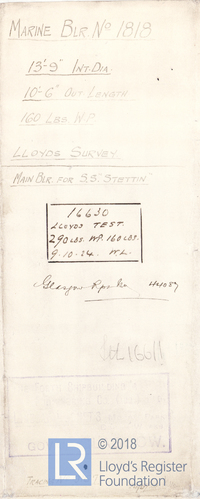 MARINE BLR Nº 1818
13'-9" INT. DIA.
10'-6" OUT. LENGTH
160 LBS. W.P.
LLOYDS SURVEY.
MAIN BLR. FOR S.S. "STETTIN"
16630
LLOYDS TEST.
290 LBS. WP. 160 LBS.
9-10-24. W.L.
Glasgow 44087
16611
© 2018
LR
Lloyd's Register
Foundation